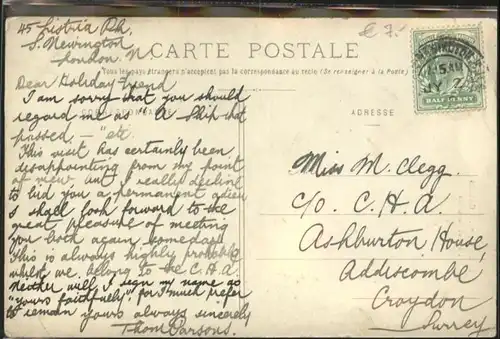 45 Listria Pk.
S. Newington
London. N.
CARTE POSTALE
Tous les pays étrangers n'acceptent pas la correspondance au recto (Se renseigner à la Poste)
Dear Holiday Friend
I am sorry that you should
regard me as "A Ship that
passed — " etc.
This visit has certainly been
disappointing from my point
of view but I really decline
to bid you a permanent adieu
I shall look forward to the
great pleasure of meeting
you both again someday
This is always highly probable
whilst we belong to the C.H.A
Neither will I sign my name as
"yours faithfully" for I much prefer
to remain yours always sincerely
Thom Parsons.
€ 7.-
HALF PENNY
ADRESSE
Miss M. Clegg.
c/o C.H.A.
Ashburton House,
Addiscombe
Croydon
Surrey